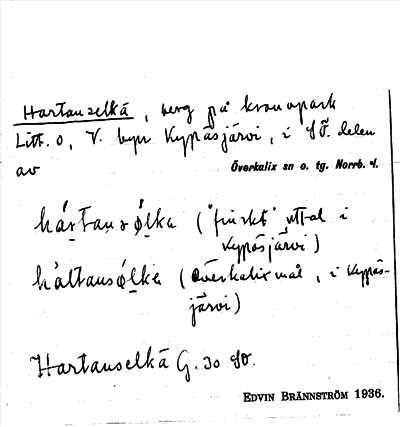 Hartauselkä, berg på kronopark
Litt. O, V. byn Kypäsjärvi, i SÖ. delen
av Överkalix sn o. tg. Norrb. l.
hártausǿlka ("finskt" uttal i
Kypäsjärvi)
háltausǿlke (Överkalixmål, i Kypäs-
järvi)
Hartauselkä G. 30 SO.
EDVIN BRÄNNSTRÖM 1936.